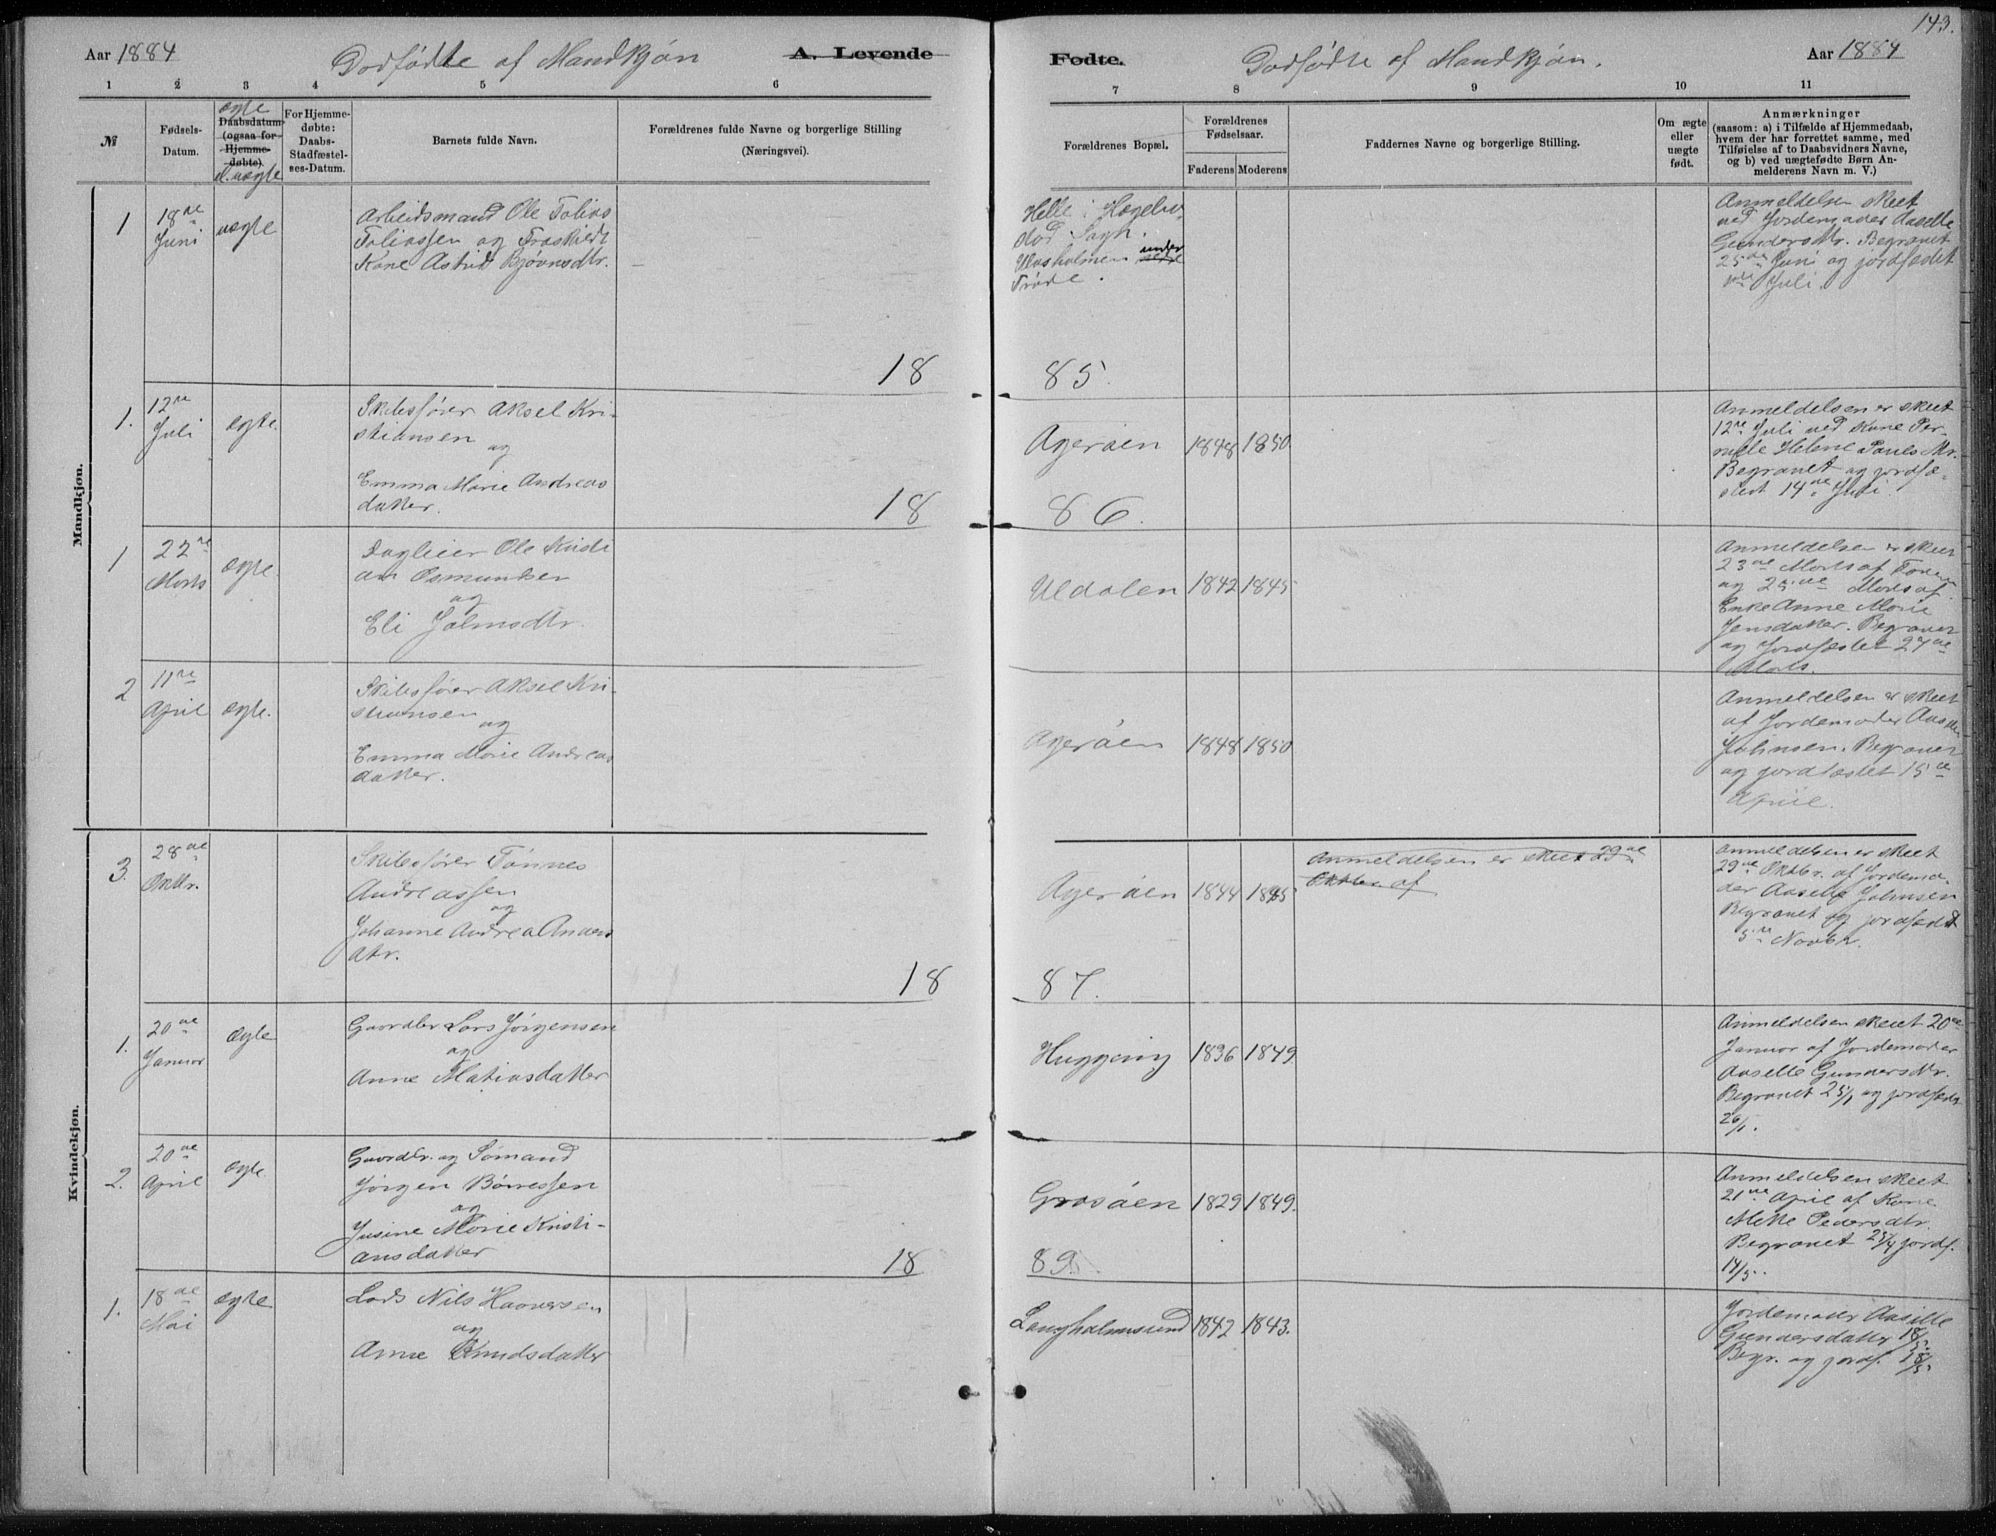 143.
Aar 1884
Dodfødte af Mandkjøn
A. Levende
Fødte.
Dodfødte af Mandkjøn.
Aar 1884
1 2 3 4 5 6 7 8 9 10 11
№
Fødsels-
Datum.
ægte
Daabsdatum
(ogsaa for
Hjemme-
døbte).
el. uægte
For Hjemme-
døbte:
Daabs-
Stadfæstel-
ses-Datum.
Barnets fulde Navn.
Forældrenes fulde Navne og borgerlige Stilling
(Næringsvei).
Forældrenes Bopæl.
Forældrenes
Fødselsaar.
Faderens Moderens
Faddernes Navne og borgerlige Stilling.
Om ægte
eller
uægte
født.
Anmærkninger
(saasom: a) i Tilfælde af Hjemmedaab,
hvem der har forrettet samme, med
Tilføielse af to Daabsvidners Navne,
og b) ved uægtefødte Børn An-
melderens Navn m. V.)
Mandkjøn.
1
18de
Juni
uægte
Arbeidsmand Ole Tobias
Tobiassen og Fraskildt
Kone Astrid Bjørnsdtr.
Helle i Hægebo
stad Sogn.
Ulvsholmen under
Trøde.
Anmeldelsen skeet
ved Jordemoder Aaselle
Gundersdtr. Begravet
25de Juni og jordfæstet
Juli.
18
85.
1.
12te
Juli
ægte.
Skibsfører Aksel Kri-
stiansen
og
Emma Marie Andreas
datter.
Agerøen 1848 1850
Anmeldelsen er skeet
12te Juli ved Kone Per-
nille Helene Paulsdtr.
Begravet og jordfæ-
stet 14de Juli.
18
86.
1
22de
Marts
ægte.
Dagleier Ole Kristi
an Osmundsen
og
Eli Jalmsdtr.
Uldalen 1842 1845
Anmeldelsen er skeet
23de Marts af Faderen
og 25de Marts af
Enke Anne Marie
Jensdatter. Begravet
og Jordfæstet 27de
Marts.
2
11te
April
ægte.
Skibsfører Aksel Kri-
stiansen
og
Emma Marie Andreas
datter.
Agerøen 1848 1850
Anmeldelsen er skeet
af Jordemoder Aaselle
Johnsen. Begravet
og jordfæstet 15de
April.
3.
28de
Oktbr.
Skibsfører Tønnes
Andreassen
og
Johanne Andrea Anders
dtr.
Agerøen 1844 1845
Anmeldelsen er skeet 29de
Oktbr. af
Anmeldelsen er skeet
29de Oktbr. af Jordemo-
der Aaselle Johnsen
Begravet og jordfæstet
5te Novbr.
18
87.
Kvindekjøn.
1.
20de
Januar
ægte
Gaardbr Lars Jørgensen
og
Anne Matiasdatter
Huggevig 1836 1849
Anmeldelsen skeet 20de
Januar af Jordemoder
Aaselle Gundersdtr.
Begravet 25/1 og jordfæstet
26/1.
2.
20de
April
ægte
Gaardbr. og Sømand
Jørgen Børressen
og
Jusine Marie Kristi-
ansdatter
Grosøen 1829 1849.
Anmeldelsen skeet
21de April af Kone
Mette Pedersdtr.
Begravet 25/4 jordf.
14/5.
18
89.
1.
18de
Mai
ægte
Lods Nils Haaversen
og
Anne Knudsdatter
Langholmsund 1842 1843.
Jordemoder Aaselle
Gundersdatter 18/5.
Begr. og jordf.